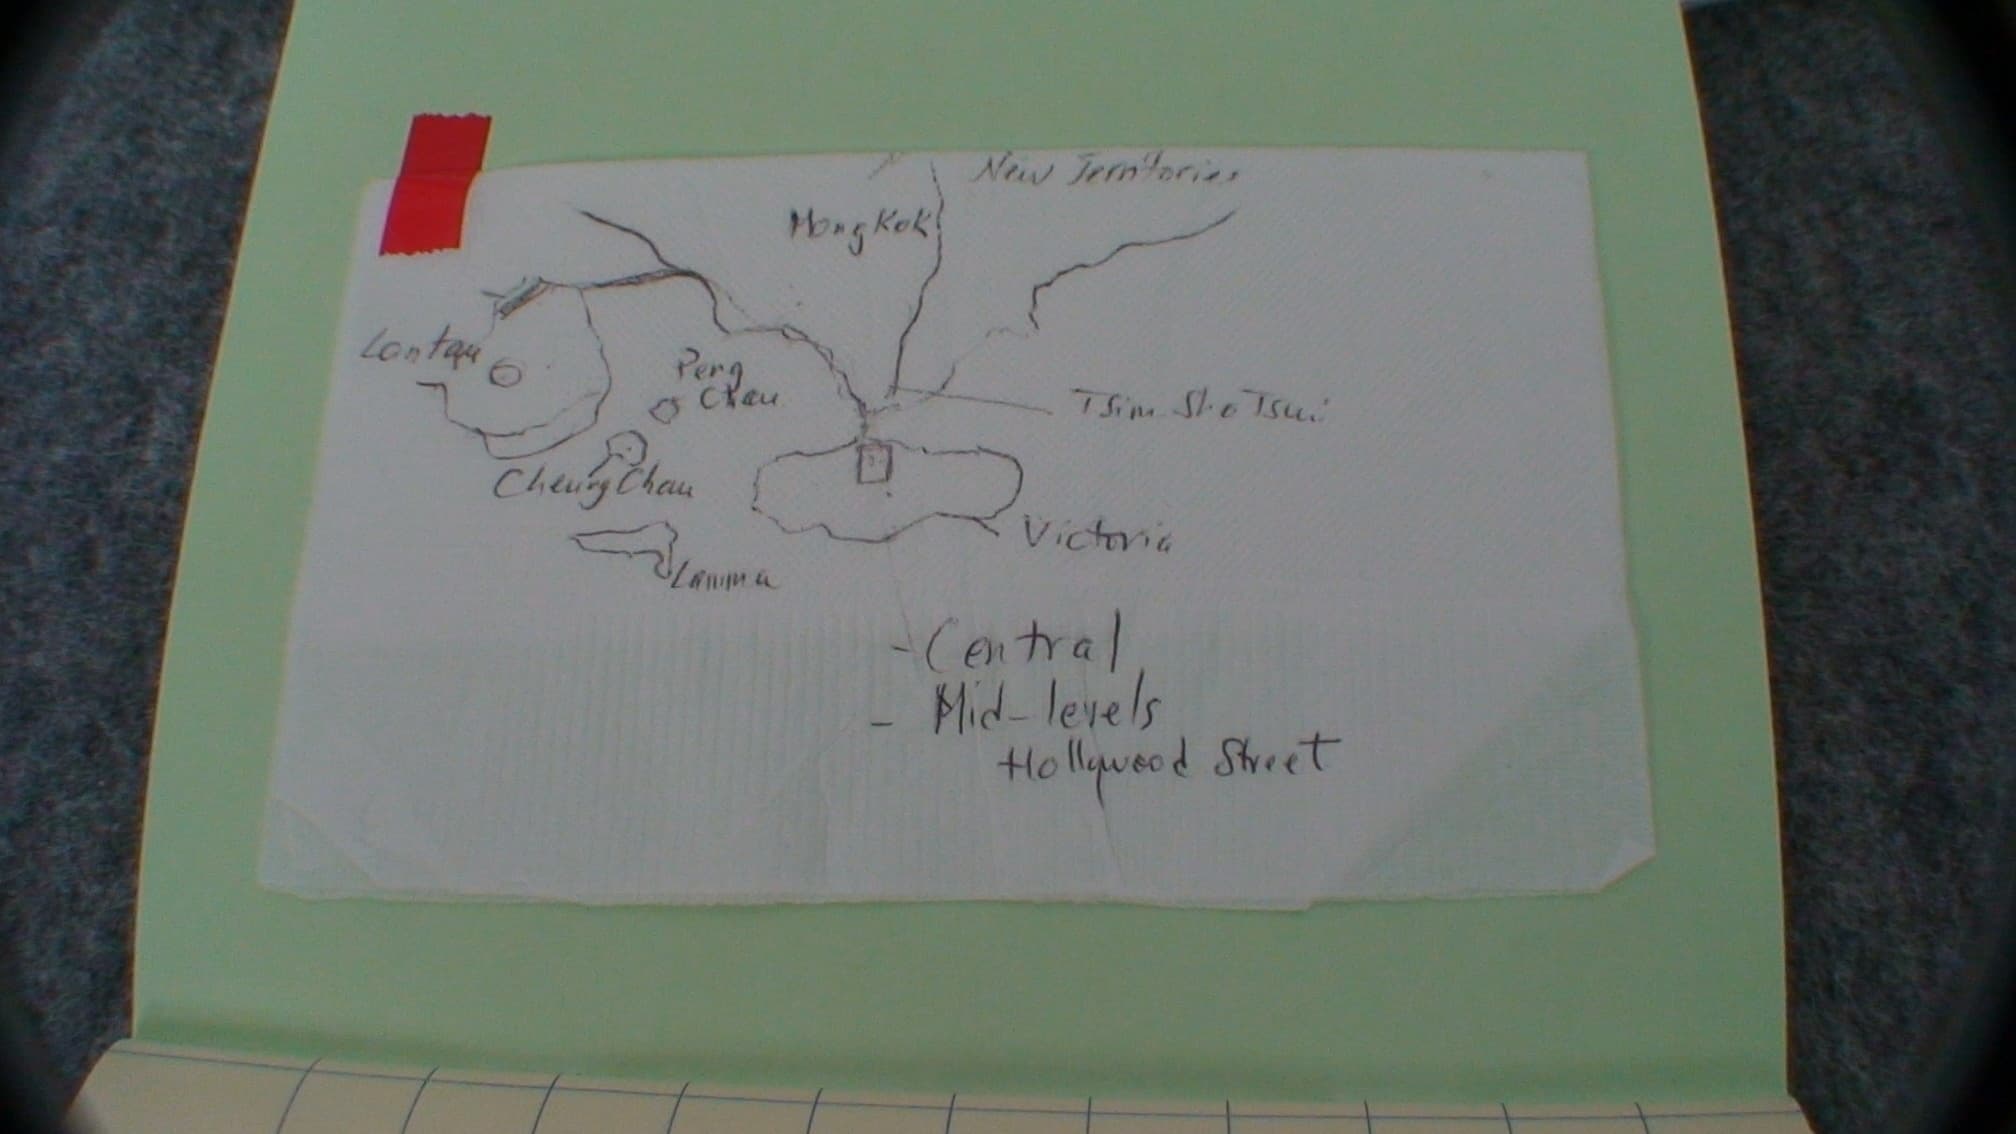 New Territories
Mong Kok
Lantau
Peng
Chau
Tsim Sha Tsui
Cheung Chau
Victoria
Lamma
- Central
- Mid-levels
Hollywood Street